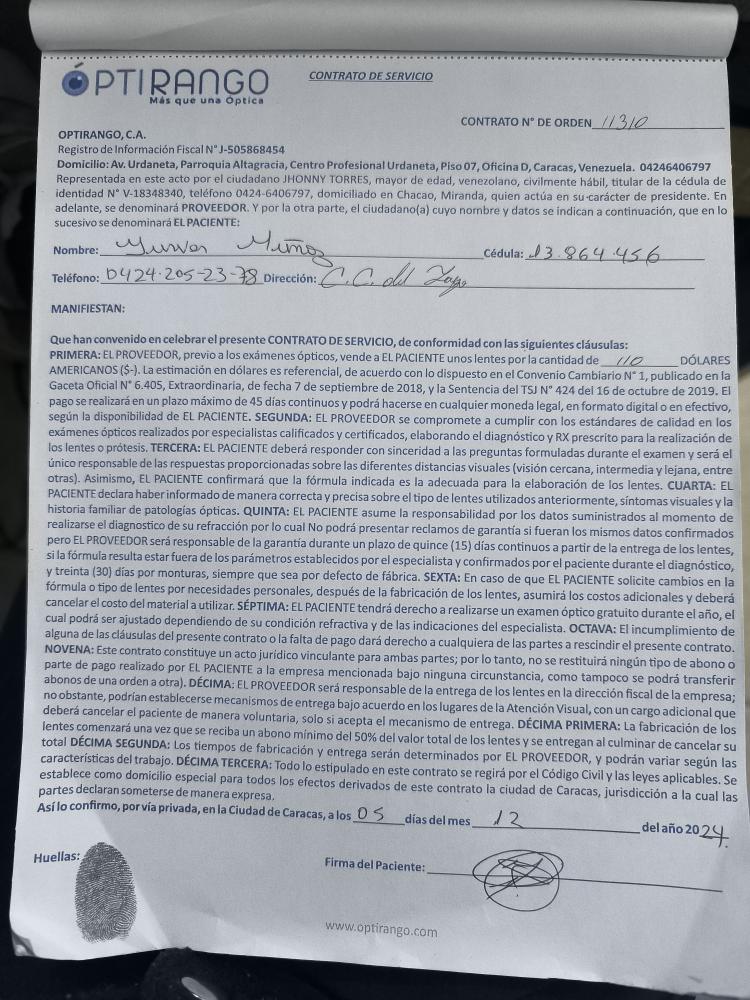 ÓPTIRANGO
Más que una Óptica
CONTRATO DE SERVICIO
CONTRATO N° DE ORDEN 11310
OPTIRANGO, C.A.
Registro de Información Fiscal N° J-505868454
Domicilio: Av. Urdaneta, Parroquia Altagracia, Centro Profesional Urdaneta, Piso 07, Oficina D, Caracas, Venezuela. 04246406797
Representada en este acto por el ciudadano JHONNY TORRES, mayor de edad, venezolano, civilmente hábil, titular de la cédula de
identidad N° V-18348340, teléfono 0424-6406797, domiciliado en Chacao, Miranda, quien actúa en su carácter de presidente. En
adelante, se denominará PROVEEDOR. Y por la otra parte, el ciudadano(a) cuyo nombre y datos se indican a continuación, que en lo
sucesivo se denominará EL PACIENTE:
Nombre: Muñoz Cédula: 13.864.456
Teléfono: 0424-205-23-78 Dirección: C.C. del
MANIFIESTAN:
Que han convenido en celebrar el presente CONTRATO DE SERVICIO, de conformidad con las siguientes cláusulas:
PRIMERA: EL PROVEEDOR, previo a los exámenes ópticos, vende a EL PACIENTE unos lentes por la cantidad de 110 DÓLARES
AMERICANOS ($-). La estimación en dólares es referencial, de acuerdo con lo dispuesto en el Convenio Cambiario N° 1, publicado en la
Gaceta Oficial N° 6.405, Extraordinaria, de fecha 7 de septiembre de 2018, y la Sentencia del TSJ N° 424 del 16 de octubre de 2019. El
pago se realizará en un plazo máximo de 45 días continuos y podrá hacerse en cualquier moneda legal, en formato digital o en efectivo,
según la disponibilidad de EL PACIENTE. SEGUNDA: EL PROVEEDOR se compromete a cumplir con los estándares de calidad en los
exámenes ópticos realizados por especialistas calificados y certificados, elaborando el diagnóstico y RX prescrito para la realización de
los lentes o prótesis. TERCERA: EL PACIENTE deberá responder con sinceridad a las preguntas formuladas durante el examen y será el
único responsable de las respuestas proporcionadas sobre las diferentes distancias visuales (visión cercana, intermedia y lejana, entre
otras). Asimismo, EL PACIENTE confirmará que la fórmula indicada es la adecuada para la elaboración de los lentes. CUARTA: EL
PACIENTE declara haber informado de manera correcta y precisa sobre el tipo de lentes utilizados anteriormente, síntomas visuales y la
historia familiar de patologías ópticas. QUINTA: EL PACIENTE asume la responsabilidad por los datos suministrados al momento de
realizarse el diagnostico de su refracción por lo cual No podrá presentar reclamos de garantía si fueran los mismos datos confirmados
pero EL PROVEEDOR será responsable de la garantía durante un plazo de quince (15) días continuos a partir de la entrega de los lentes,
si la fórmula resulta estar fuera de los parámetros establecidos por el especialista y confirmados por el paciente durante el diagnóstico,
y treinta (30) días por monturas, siempre que sea por defecto de fábrica. SEXTA: En caso de que EL PACIENTE solicite cambios en la
fórmula o tipo de lentes por necesidades personales, después de la fabricación de los lentes, asumirá los costos adicionales y deberá
cancelar el costo del material a utilizar. SÉPTIMA: EL PACIENTE tendrá derecho a realizarse un examen óptico gratuito durante el año, el
cual podrá ser ajustado dependiendo de su condición refractiva y de las indicaciones del especialista. OCTAVA: El incumplimiento de
alguna de las cláusulas del presente contrato o la falta de pago dará derecho a cualquiera de las partes a rescindir el presente contrato.
NOVENA: Este contrato constituye un acto jurídico vinculante para ambas partes; por lo tanto, no se restituirá ningún tipo de abono o
parte de pago realizado por EL PACIENTE a la empresa mencionada bajo ninguna circunstancia, como tampoco se podrá transferir
abonos de una orden a otra). DÉCIMA: EL PROVEEDOR será responsable de la entrega de los lentes en la dirección fiscal de la empresa;
no obstante, podrían establecerse mecanismos de entrega bajo acuerdo en los lugares de la Atención Visual, con un cargo adicional que
deberá cancelar el paciente de manera voluntaria, solo si acepta el mecanismo de entrega. DÉCIMA PRIMERA: La fabricación de los
lentes comenzará una vez que se reciba un abono mínimo del 50% del valor total de los lentes y se entregan al culminar de cancelar su
total DÉCIMA SEGUNDA: Los tiempos de fabricación y entrega serán determinados por EL PROVEEDOR, y podrán variar según las
características del trabajo. DÉCIMA TERCERA: Todo lo estipulado en este contrato se regirá por el Código Civil y las leyes aplicables. Se
establece como domicilio especial para todos los efectos derivados de este contrato la ciudad de Caracas, jurisdicción a la cual las
partes declaran someterse de manera expresa.
Así lo confirmo, por vía privada, en la Ciudad de Caracas, a los 05 días del mes 12 del año 2024.
Huellas:
Firma del Paciente:
www.optirango.com